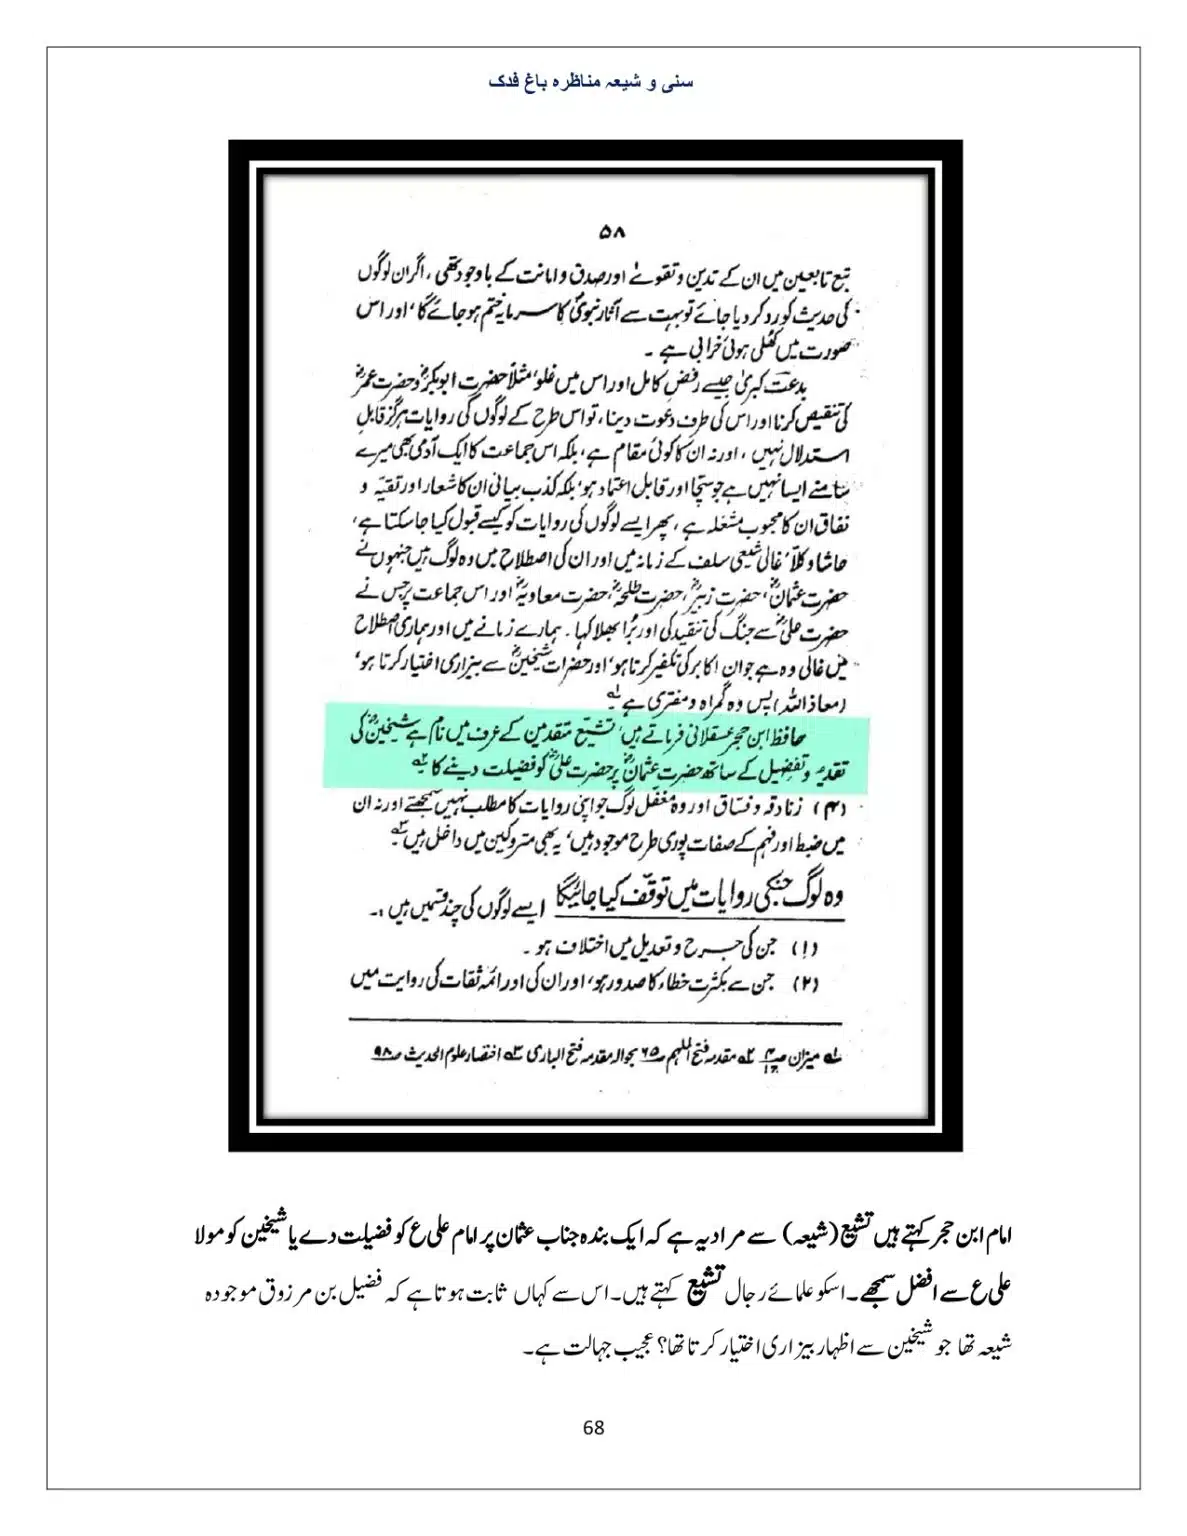 سنی و شیعہ مناظرہ باغ فدک
۵۸
تبع تابعین میں ان کے تدین و تقویٰ اور صدق و امانت کے باوجود تھی، اگر ان لوگوں
کی حدیث کو رد کر دیا جائے تو بہت سے آثار نبویؐ کا سرمایہ ختم ہو جائے گا، اور اس
صورت میں کھلی ہوئی خرابی ہے ۔
بدعت کبریٰ جیسے رفض کامل اور اس میں غلو، مثلاً حضرت ابوبکرؓ و حضرت عمرؓ
کی تنقیص کرنا اور اس کی طرف دعوت دینا، تو اس طرح کے لوگوں کی روایات ہرگز قابلِ
استدلال نہیں، اور نہ ان کا کوئی مقام ہے، بلکہ اس جماعت کا ایک آدمی بھی میرے
سامنے ایسا نہیں ہے جو سچا اور قابل اعتماد ہو، بلکہ کذب بیانی ان کا شعار اور تقیّہ و
نفاق ان کا محبوب مشغلہ ہے، پھر ایسے لوگوں کی روایات کو کیسے قبول کیا جا سکتا ہے،
حاشا و کلّا، غالی شیعی سلف کے زمانہ میں اور ان کی اصطلاح میں وہ لوگ ہیں جنہوں نے
حضرت عثمانؓ، حضرت زبیرؓ، حضرت طلحہؓ، حضرت معاویہؓ اور اس جماعت پر جس نے
حضرت علیؓ سے جنگ کی تنقید کی اور بُرا بھلا کہا۔ ہمارے زمانے میں اور ہماری اصطلاح
میں غالی وہ ہے جو ان اکابر کی تکفیر کرتا ہو، اور حضرات شیخینؓ سے بیزاری اختیار کرتا ہو،
(معاذ اللہ) پس وہ گمراہ و مفتری ہے ؎۱
حافظ ابن حجر عسقلانی فرماتے ہیں، تشیّع متقدمین کے عرف میں نام ہے شیخینؓ کی
تقدیم و تفضیل کے ساتھ حضرت عثمانؓ پر حضرت علیؓ کو فضیلت دینے کا ؎۲
(۴) زنادقہ و فساق اور وہ مغفل لوگ جو اپنی روایات کا مطلب نہیں سمجھتے اور نہ ان
میں ضبط اور فہم کے صفات پوری طرح موجود ہیں، یہ بھی متروکین میں داخل ہیں ؎۳
وہ لوگ جنکی روایات میں توقف کیا جائیگا ایسے لوگوں کی چند قسمیں ہیں :۔
(۱) جن کی جرح و تعدیل میں اختلاف ہو ۔
(۲) جن سے بکثرت خطاء کا صدور ہو، اور ان کی اور ائمہ ثقات کی روایت میں
؎۱ میزان ص ؎۲ مقدمہ فتح الملہم ص۶۵ بحوالہ مقدمہ فتح الباری ؎۳ اختصار علوم الحدیث ص۹۸
امام ابن حجر کہتے ہیں تشیع (شیعہ) سے مراد یہ ہے کہ ایک بندہ جناب عثمان پر امام علی ع کو فضیلت دے یا شیخین کو مولا
علی ع سے افضل سمجھے۔ اسکو علمائے رجال تشیع کہتے ہیں۔ اس سے کہاں ثابت ہوتا ہے کہ فضیل بن مرزوق موجودہ
شیعہ تھا جو شیخین سے اظہار بیزاری اختیار کرتا تھا؟ عجیب جہالت ہے۔
68